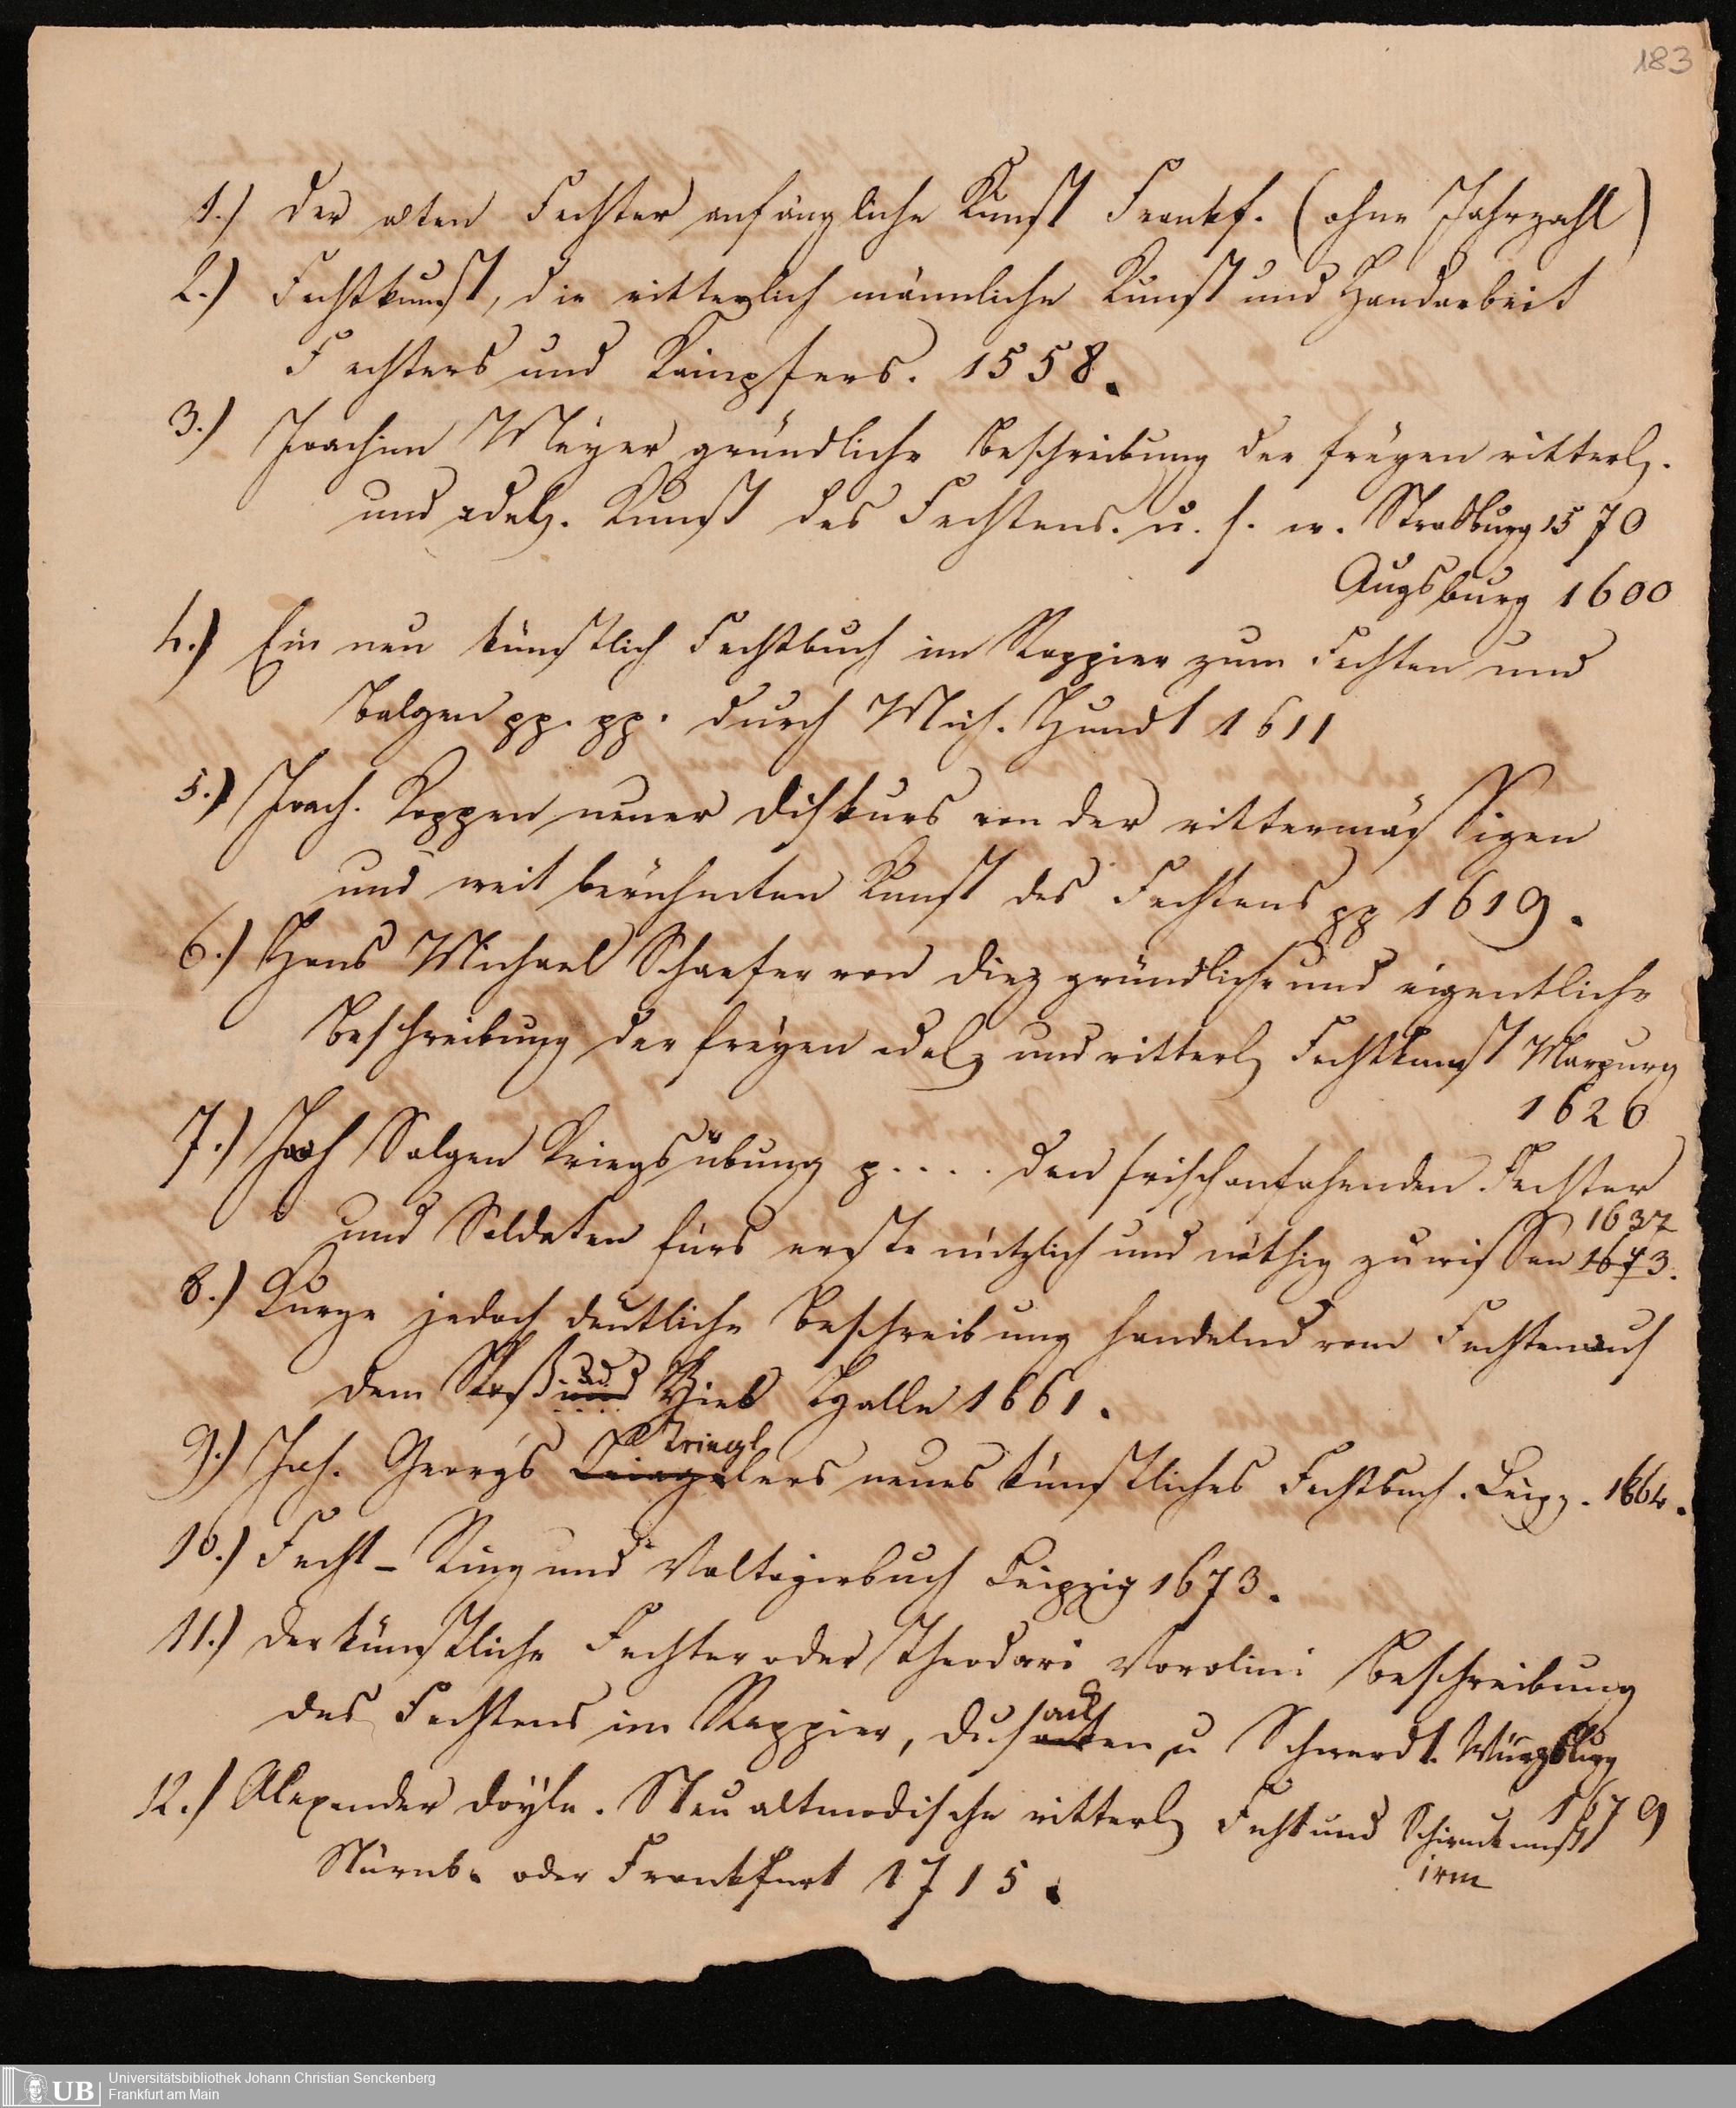 183
1.) Der alten Fechter anfängliche Kunst Frankf. (ohne Jahrzahl)
2.) Fechtkunst, die ritterlich männliche Kunst und Handarbeit
Fechters und Kämpfers. 1558.
3.) Joachim Meÿer gründliche Beschreibung der freÿen ritterl.
und adel. Kunst des Fechtens. u. s. w. Strasburg 1570
Augsburg 1600
4.) Ein neu künstlich Fechtbuch im Rappier zum Fechten und
Balgen pp. pp. durch Mich. Hundt 1611
5.) Joach. Koppen neuer Diskurs von der rittermässigen
und weit berühmten Kunst des Fechtens pp 1619.
6.) Hans Michael Schaefer von Diez gründliche und eigentliche
Beschreibung der freÿen adel und ritterl Fechtkunst Marpurg
1626
7.) Salgen Kriegsübung p.... den frischanfahenden Fechter
1637
und Soldaten fürs erste nützlich und nöthig zu wissen 1673.
8.) Kurze jedoch deutliche Beschreibung handelnd vom Fechten auf
den Stoß und Hieb Halle 1661.
Triegl
9.) Joh. Georgs lers neues künstliches Fechtbuch. Leipz. 1664.
10.) Fecht- Ring und Voltigirbuch Leipzig 1673.
11.) Der künstliche Fechter oder Theodori Verolini Beschreibung
des Fechtens im Rappier, Dusacken u Schwerdt. Würzburg
1679
12.) Alexander Doÿle. Neu altmodische ritterl Fecht und Schirmkunst
irm
Nürnb. oder Frankfurt 1715.
UB Universitätsbibliothek Johann Christian Senckenberg
Frankfurt am Main